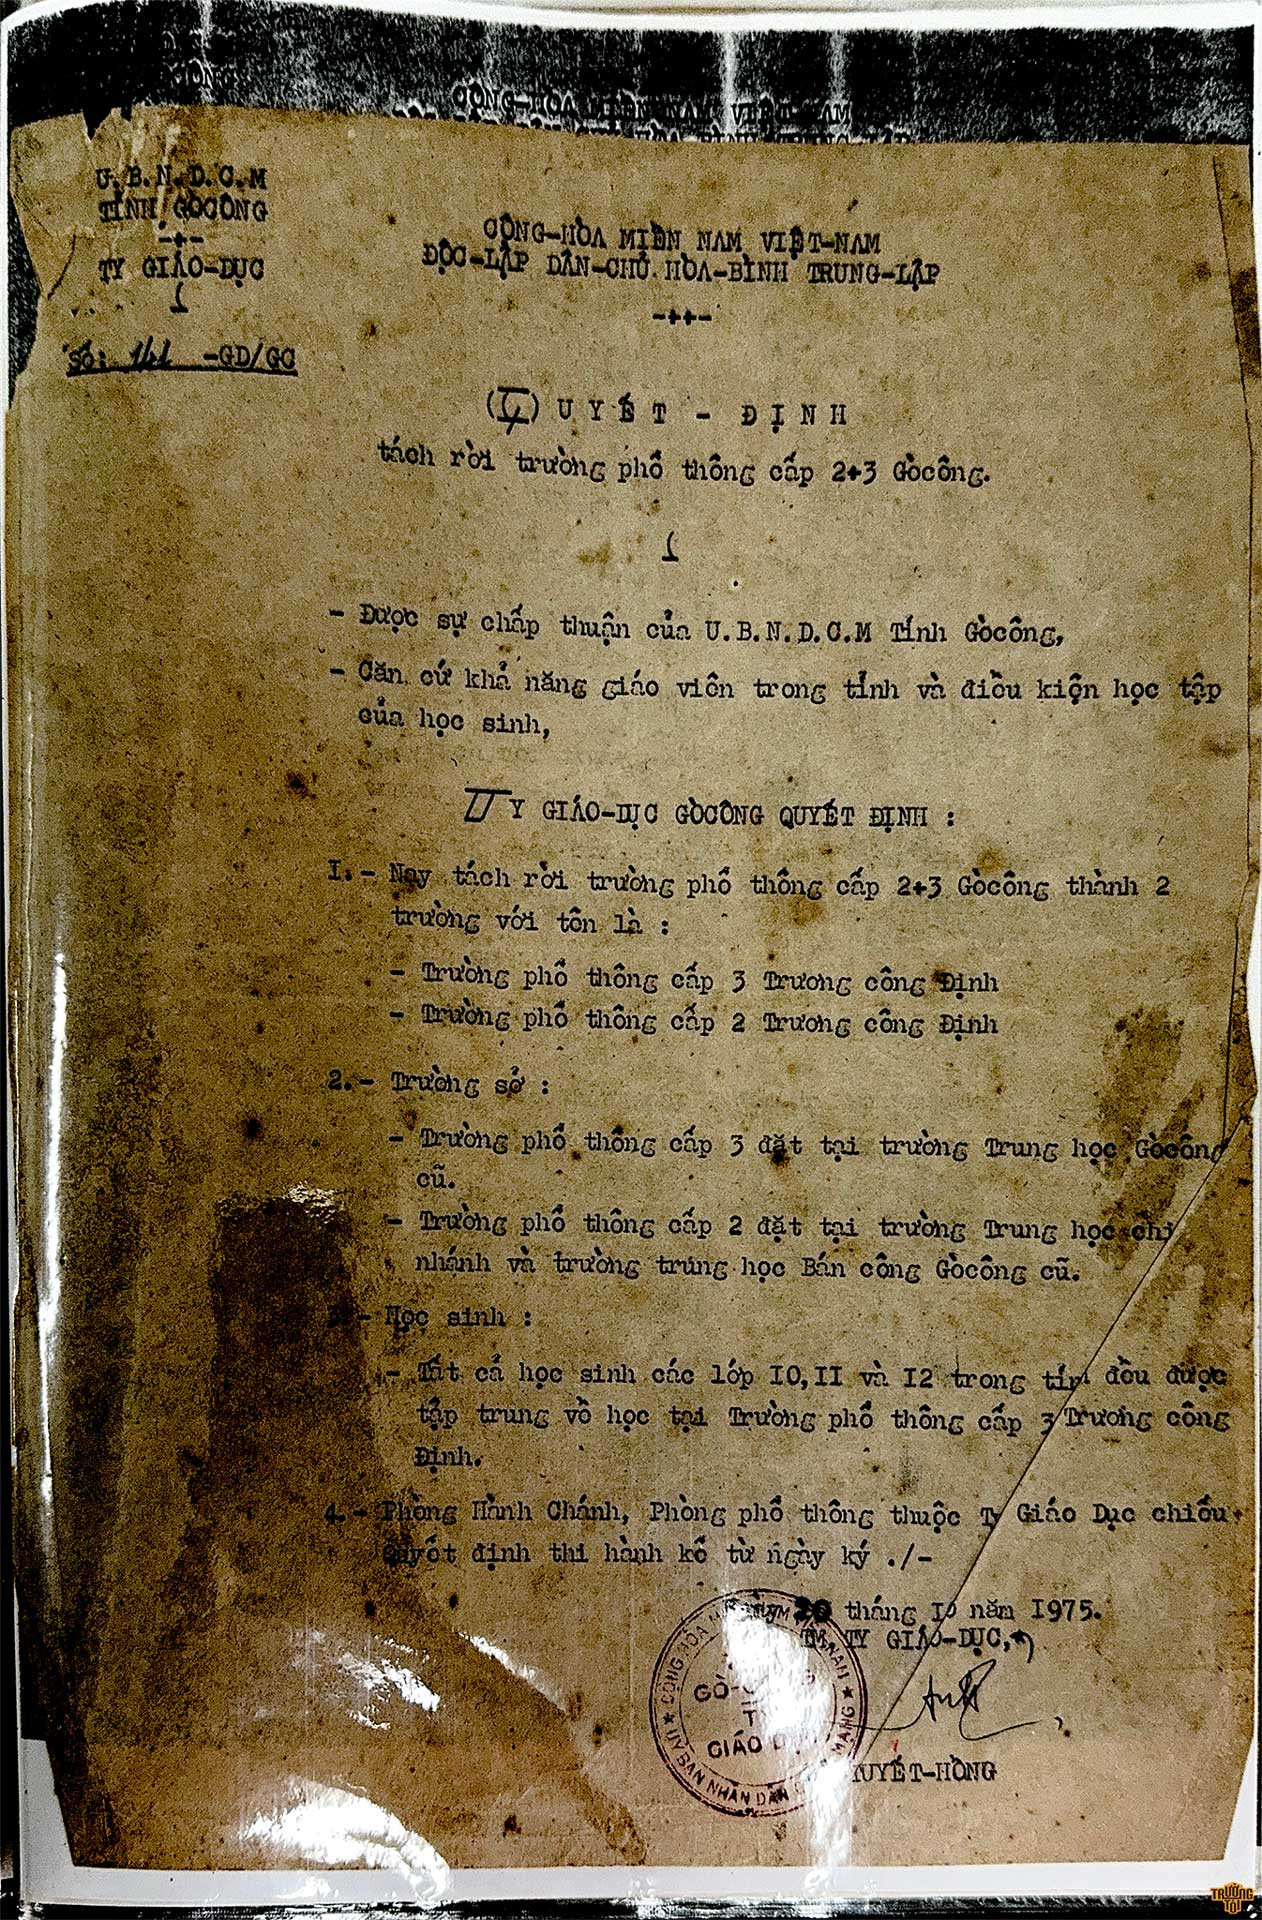 CỘNG-HÒA MIỀN NAM VIỆT-NAM
U.B.N.D.C.M
TỈNH GÒCÔNG
-+-
TY GIÁO-DỤC
Số: 141 -GD/GC
CỘNG-HÒA MIỀN NAM VIỆT-NAM
ĐỘC-LẬP DÂN-CHỦ HÒA-BÌNH TRUNG-LẬP
-++-
(Q) U Y Ế T - Đ Ị N H
tách rời trường phổ thông cấp 2+3 Gòcông.
- Được sự chấp thuận của U.B.N.D.C.M Tỉnh Gòcông,
- Căn cứ khả năng giáo viên trong tỉnh và điều kiện học tập
của học sinh,
TY GIÁO-DỤC GÒCÔNG QUYẾT ĐỊNH :
I.- Nay tách rời trường phổ thông cấp 2+3 Gòcông thành 2
trường với tên là :
- Trường phổ thông cấp 3 Trương công Định
- Trường phổ thông cấp 2 Trương công Định
2.- Trường sở :
- Trường phổ thông cấp 3 đặt tại trường Trung học Gòcông
cũ.
- Trường phổ thông cấp 2 đặt tại trường Trung học chi
nhánh và trường trung học Bán công Gòcông cũ.
3.- Học sinh :
- Tất cả học sinh các lớp IO,II và I2 trong tỉnh đều được
tập trung về học tại Trường phổ thông cấp 3 Trương công
Định.
4.- Phòng Hành Chánh, Phòng phổ thông thuộc Ty Giáo Dục chiếu
Quyết định thi hành kể từ ngày ký ./-
20 tháng 10 năm I975.
TM. TY GIÁO-DỤC,
CỘNG HÒA MIỀN NAM VIỆT NAM
GÒ-CÔNG
TY
GIÁO DỤC
ỦY BAN NHÂN DÂN CÁCH MẠNG
TUYẾT-HỒNG
TRƯỜNG
TÔI